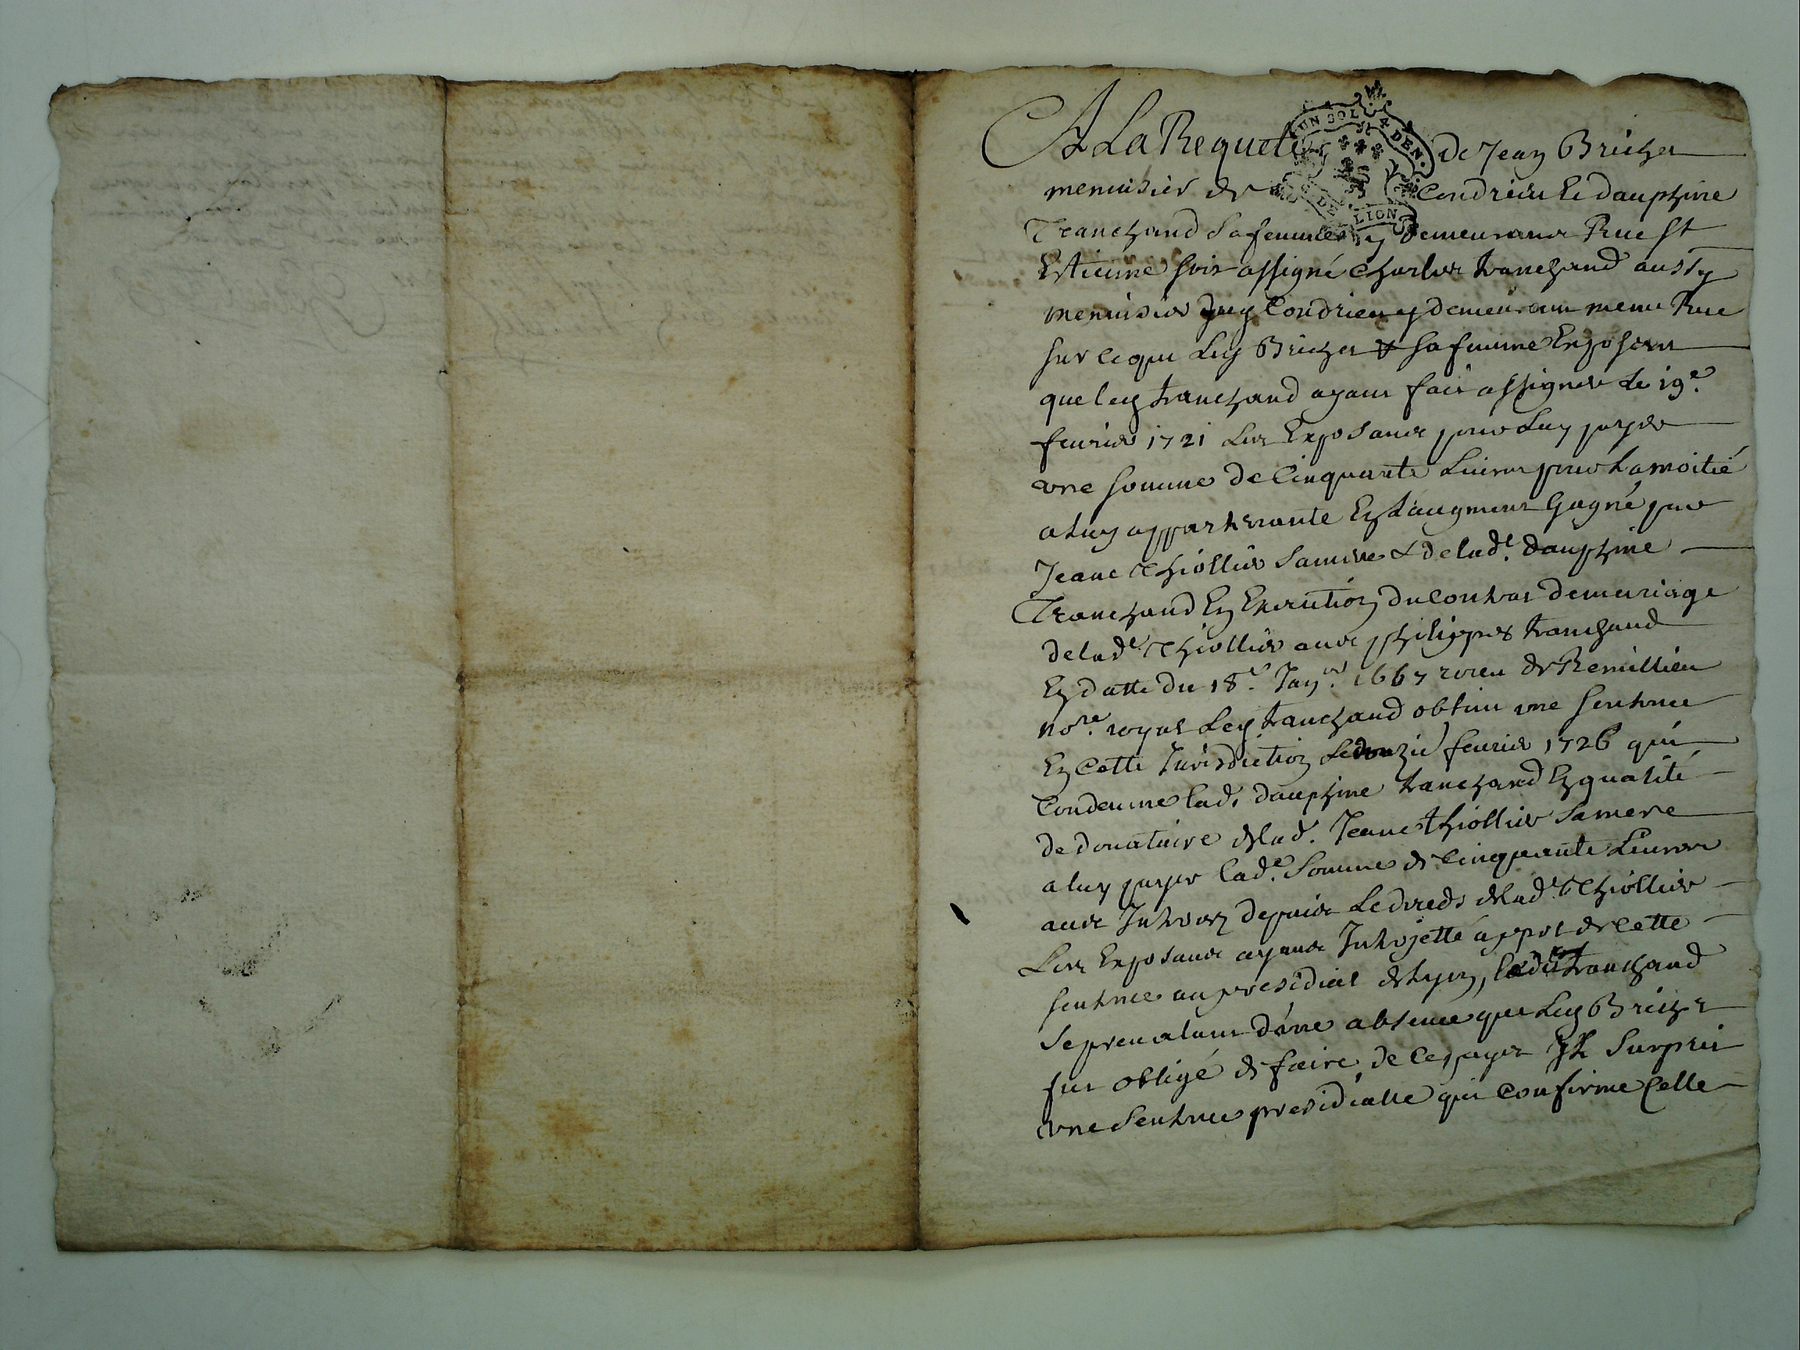 A La Requete de Jean Bricher
UN SOL 4 DEN.
DE LION
menuisier de Condrieu Et dauphine
Tranchand Sa femme y demeurants Rue St
Estienne soit assigné Charles tranchand aussy
menuisier Condrieu y demeurant meme Rue
sur ce que Led Bricher & sa femme Exposent
que led tranchand ayant fait assigner Le 19e
fevrier 1721 Les Exposants pour Luy payer
une somme de Cinquante Livres pour La moitié
a Luy appartenante En L'augment Gagné par
Jeane Thiollier Sa mere & de lade dauphine
Tranchand En Execution du Contrat de mariage
de lade Thiollier avec philippes tranchand
En datte du 18e Janr 1667 receu de Remillieu
nore royal Led tranchand obtint une sentence
En Cette Jurisdiction Le fevrier 1726 qui
Condemne lad. dauphine tranchand En qualité
de donataire de lad. Jeane thiollier Sa mere
a luy payer lade Somme de Cinquante Livres
avec Interets depuis Le deceds de lade Thiollier
Les Exposants ayants Interjetté appel de Cette
sentence au presidial de Lyon, tranchand
Se prevalant d'une absence que Led Bricher
fut obligé de faire de Ce pays Il Surprit
une Sentence presidialle qui Confirme Celle